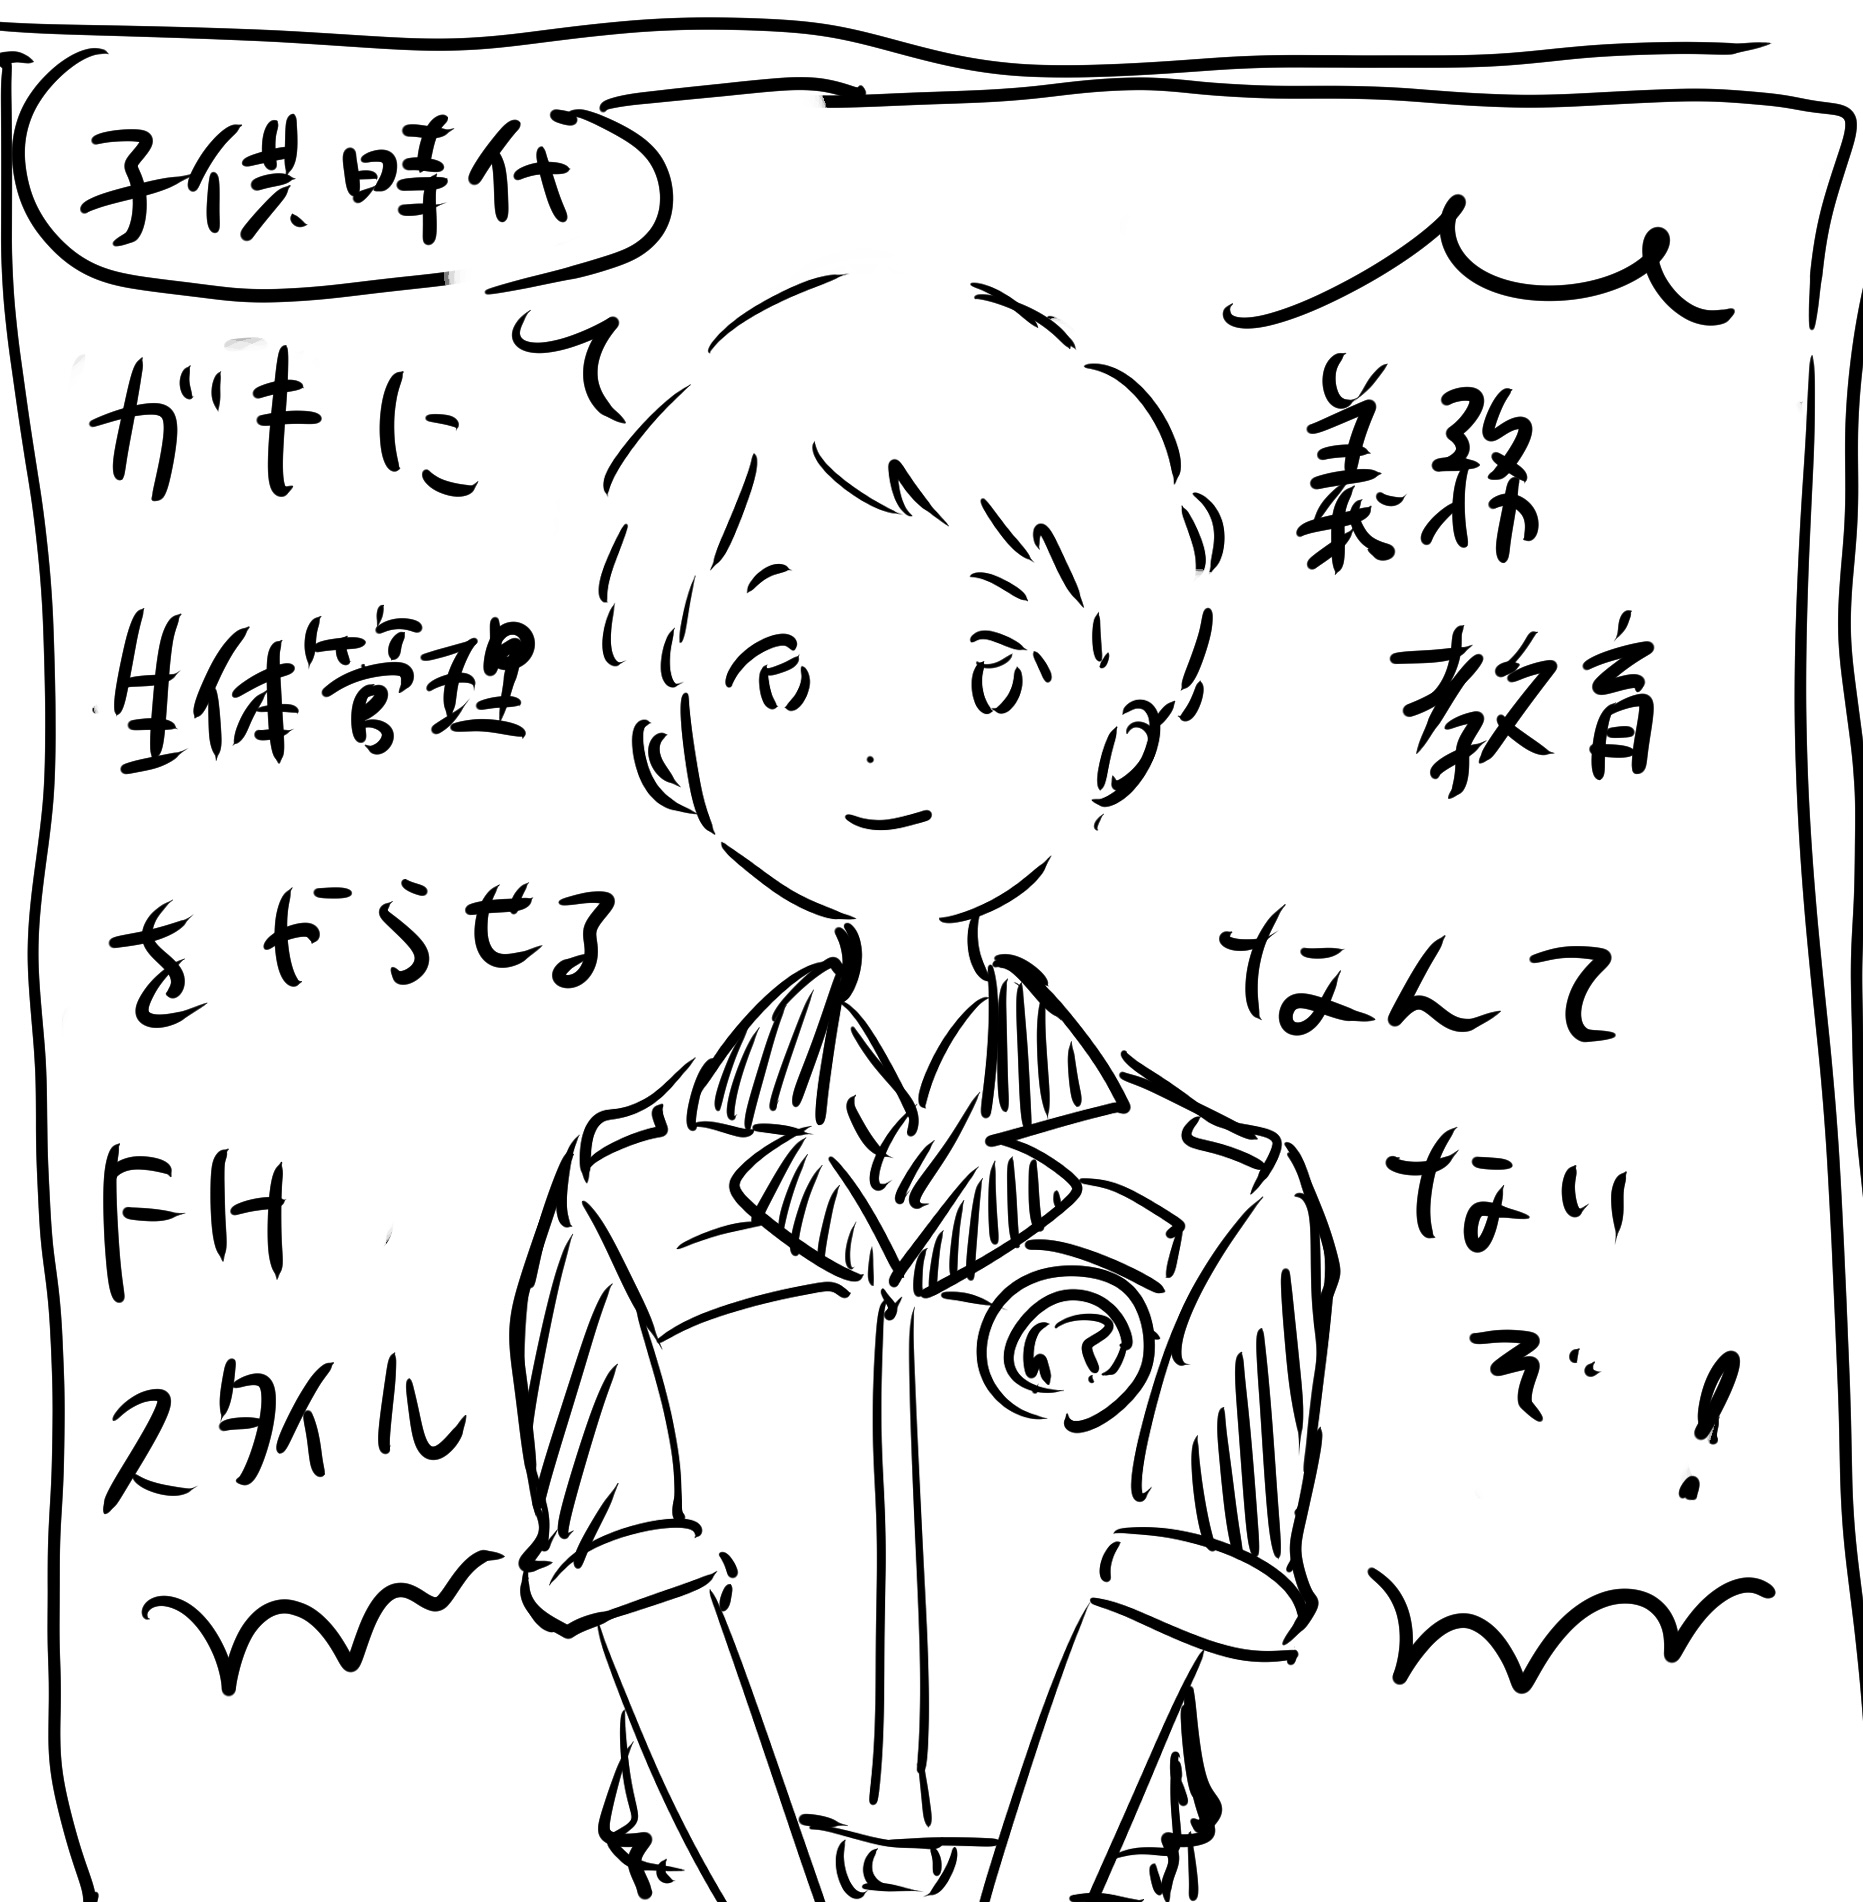 子供時代
がもに
生徒管理
をやらせる
FH
スタイル
義務
教育
なんて
ないぞ!